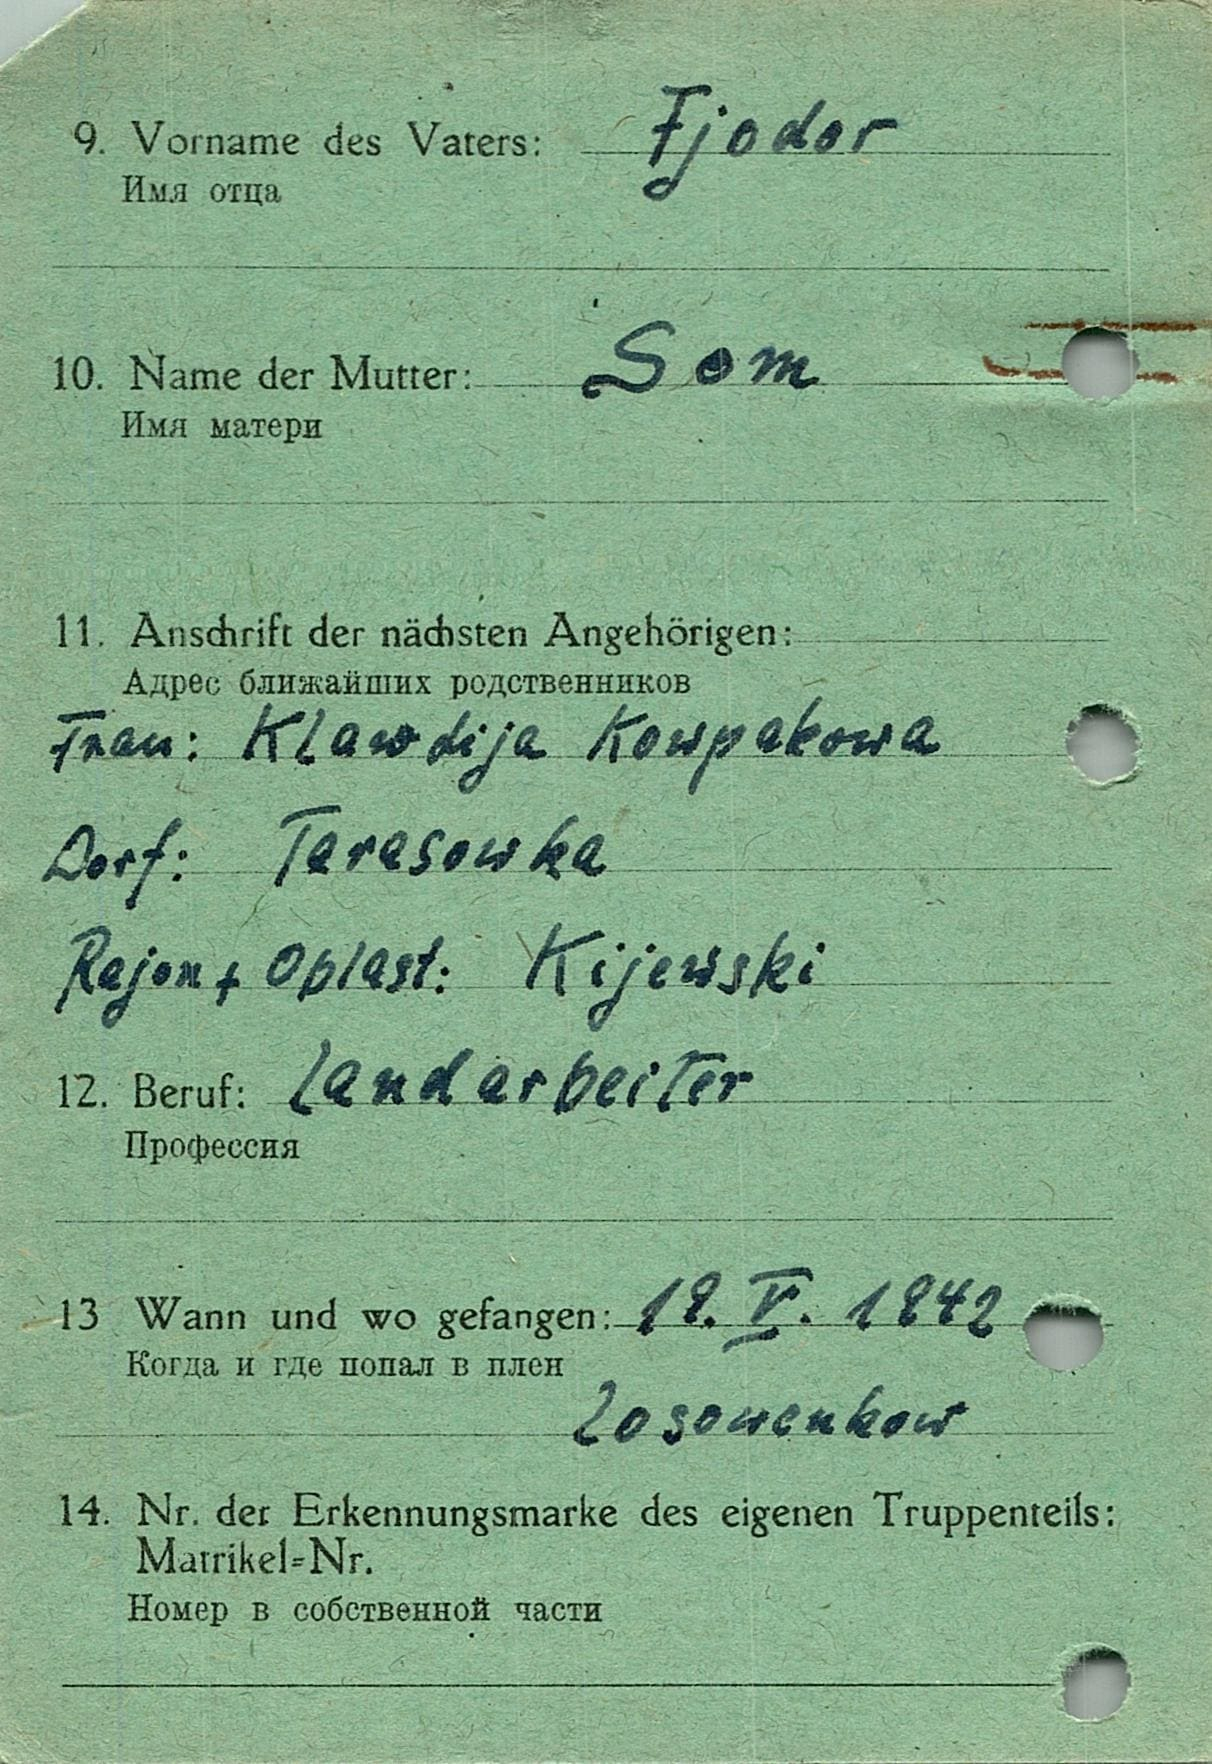 9. Vorname des Vaters: Fjodor
Имя отца
10. Name der Mutter: Som
Имя матери
11. Anschrift der nächsten Angehörigen:
Адрес ближайших родственников
Frau: Klawdija Kowpakowa
Dorf: Tarasowka
Rajon + Oblast: Kijewski
12. Beruf: Landarbeiter
Профессия
13 Wann und wo gefangen: 19. V. 1942
Когда и где попал в плен
Losowenkow
14. Nr. der Erkennungsmarke des eigenen Truppenteils:
Matrikel=Nr.
Номер в собственной части